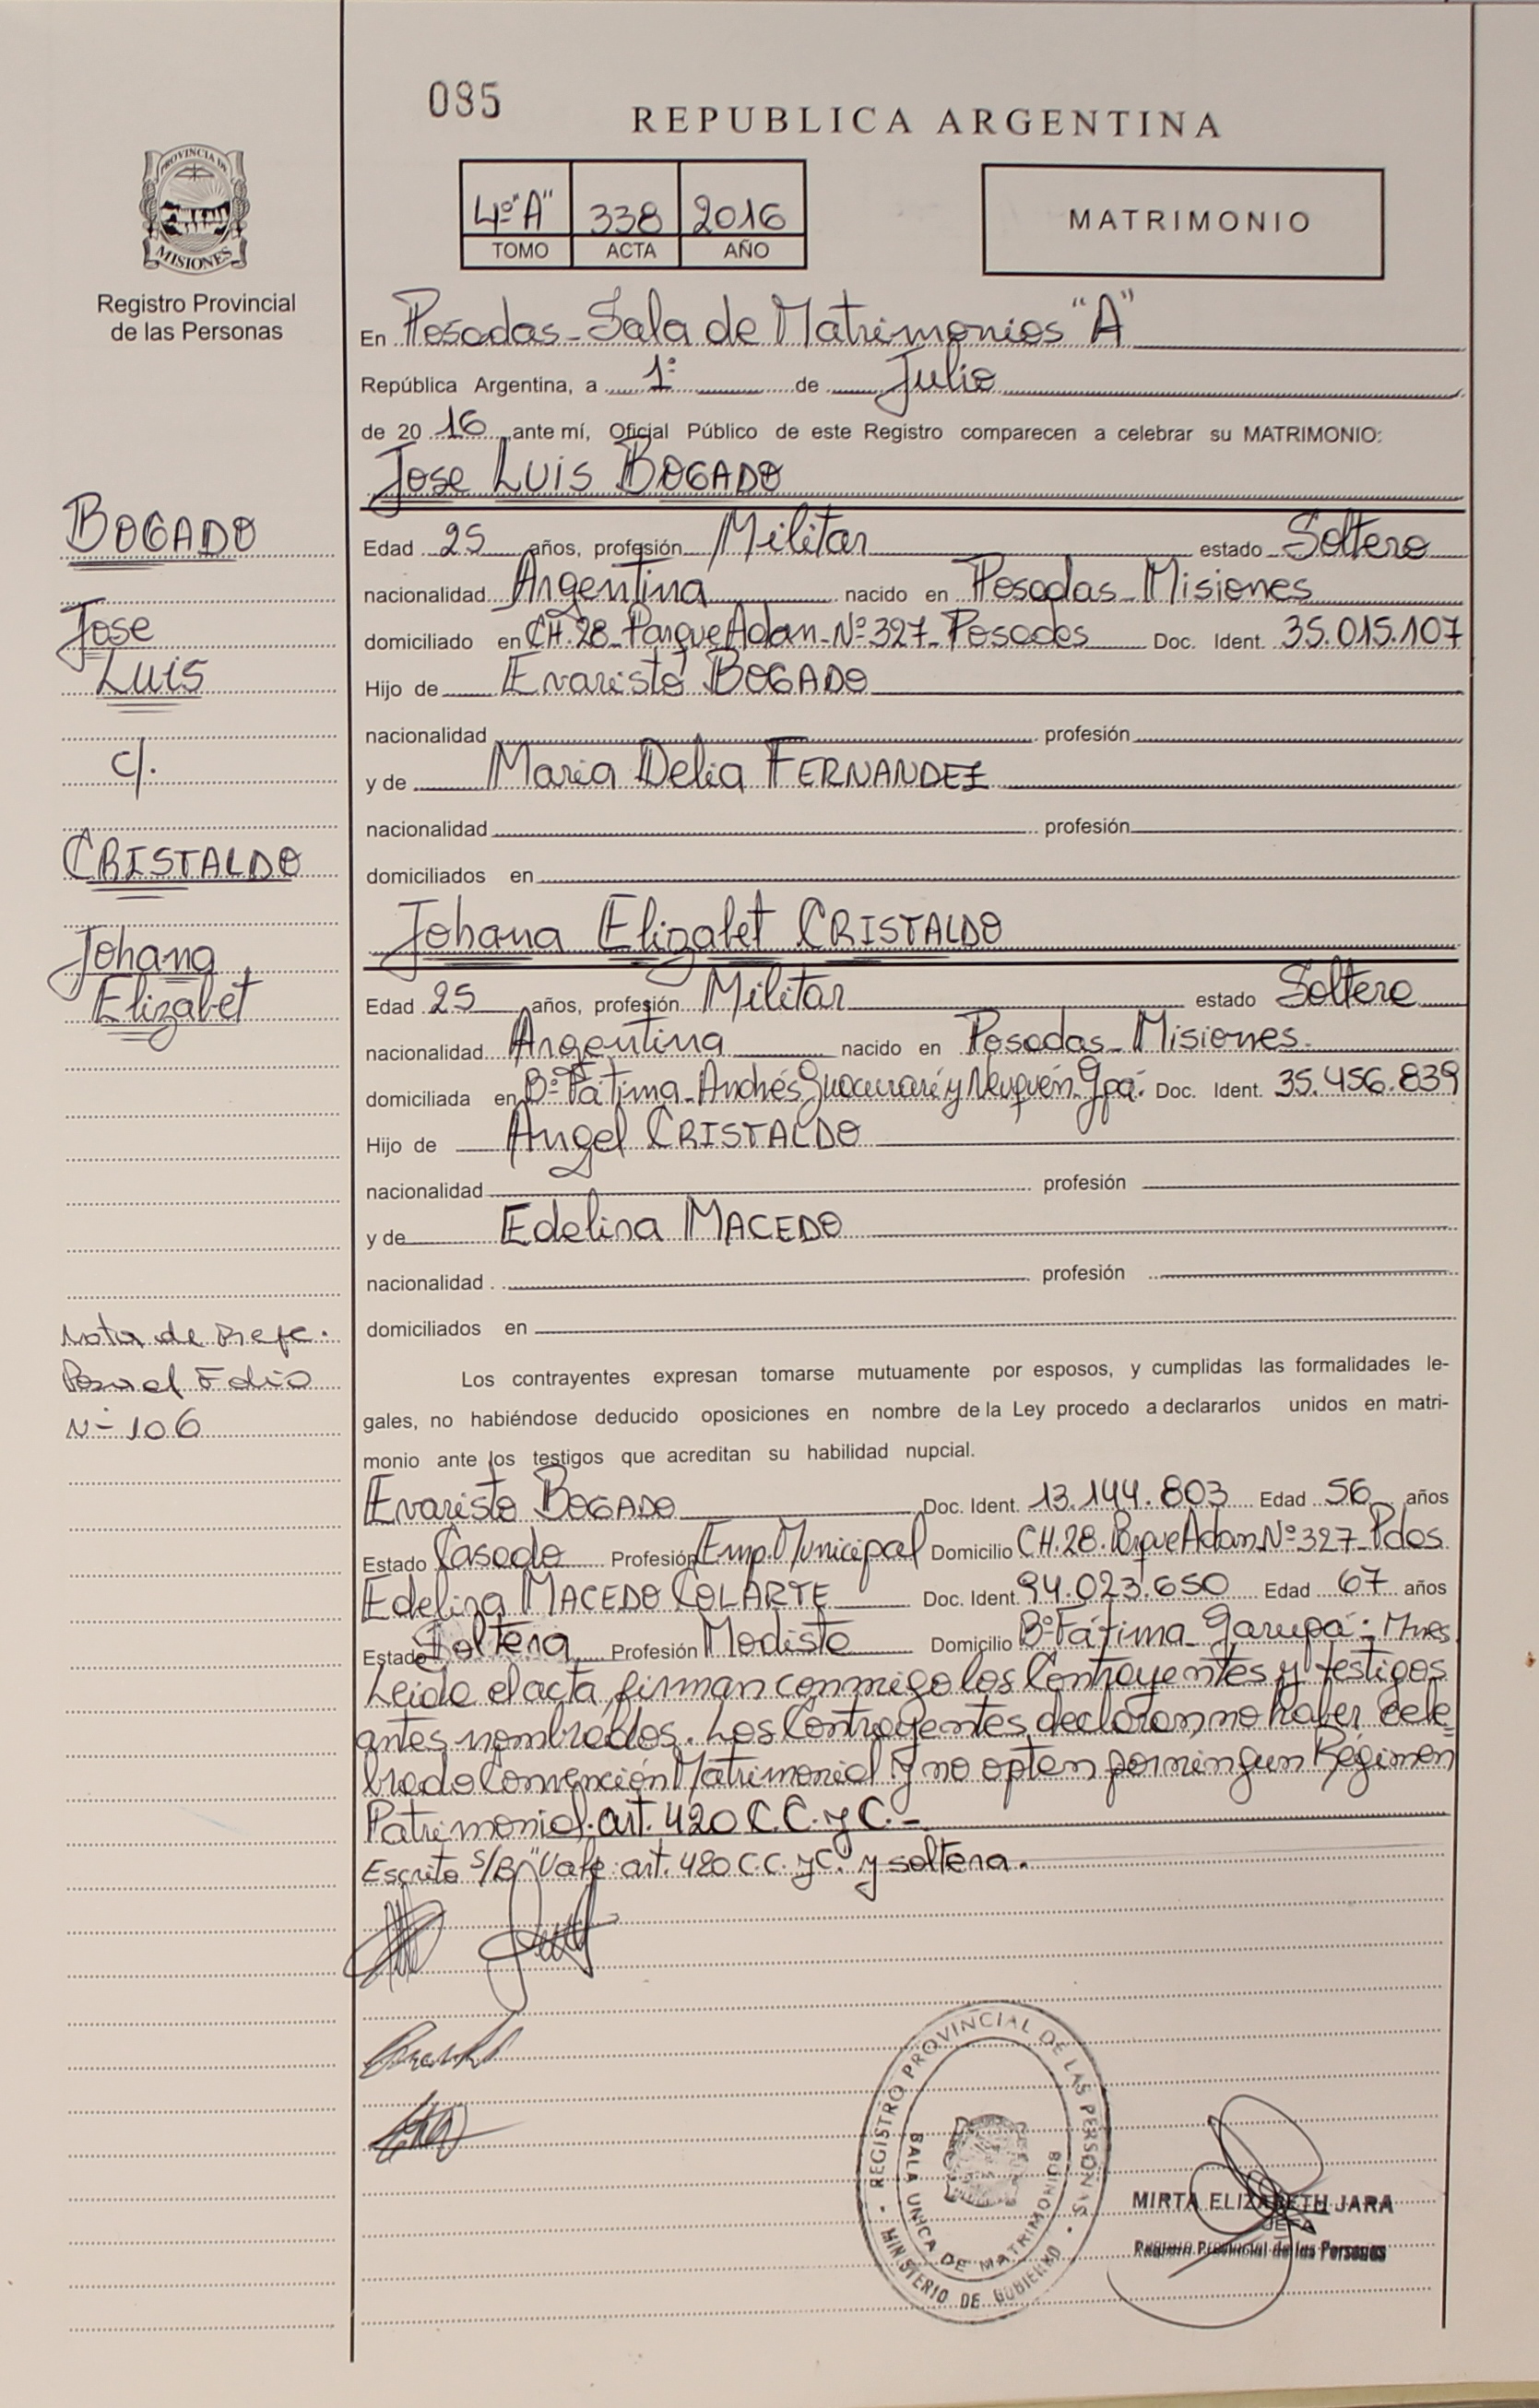 085
REPUBLICA ARGENTINA
PROVINCIA DE
MISIONES
Registro Provincial
de las Personas
4º "A" 338 2016
TOMO ACTA AÑO
MATRIMONIO
En Posadas - Sala de Matrimonios "A"
República Argentina, a 1º de Julio
de 20 16 ante mí, Oficial Público de este Registro comparecen a celebrar su MATRIMONIO:
Jose Luis BOGADO
BOGADO
Jose
Luis
c/.
CRISTALDO
Johana
Elizabet
Edad 25 años, profesión Militar estado Soltero
nacionalidad Argentina nacido en Posadas - Misiones
domiciliado en CH. 28 - Parque Adam - Nº 327 - Posadas Doc. Ident. 35.015.107
Hijo de Evaristo BOGADO
nacionalidad profesión
y de Maria Delia FERNANDEZ
nacionalidad profesión
domiciliados en
Johana Elizabet CRISTALDO
Edad 25 años, profesión Militar estado Soltera
nacionalidad Argentina nacido en Posadas - Misiones
domiciliada en Bº Fátima - Andrés Guacurarí y Neuquén - Gpá. Doc. Ident. 35.456.839
Hijo de Angel CRISTALDO
nacionalidad profesión
y de Edelira MACEDO
nacionalidad profesión
domiciliados en
Nota de Refe.
Pasa al Folio
Nº 106
Los contrayentes expresan tomarse mutuamente por esposos, y cumplidas las formalidades le-
gales, no habiéndose deducido oposiciones en nombre de la Ley procedo a declararlos unidos en matri-
monio ante los testigos que acreditan su habilidad nupcial.
Evaristo BOGADO Doc. Ident. 13.144.803 Edad 56 años
Estado Casado Profesión Emp. Municipal Domicilio CH. 28 - Parque Adam Nº 327 - Pdas
Edelira MACEDO COLARTE Doc. Ident. 94.023.650 Edad 67 años
Estado Soltera Profesión Modista Domicilio Bº Fátima - Garupá - Mnes
Leida el acta, firman conmigo los Contrayentes y testigos
antes nombrados. Los Contrayentes declaran no haber cele=
brado Convención Matrimonial y no optan por ningun Régimen
Patrimonial. art. 420 C.C. y C. -
Escrito S/B "Vale: art. 420 C.C. y C." y soltera.
REGISTRO PROVINCIAL DE LAS PERSONAS
MINISTERIO DE GOBIERNO
SALA UNICA DE MATRIMONIOS
MIRTA ELIZABETH JARA
JEFA
Registro Provincial de las Personas